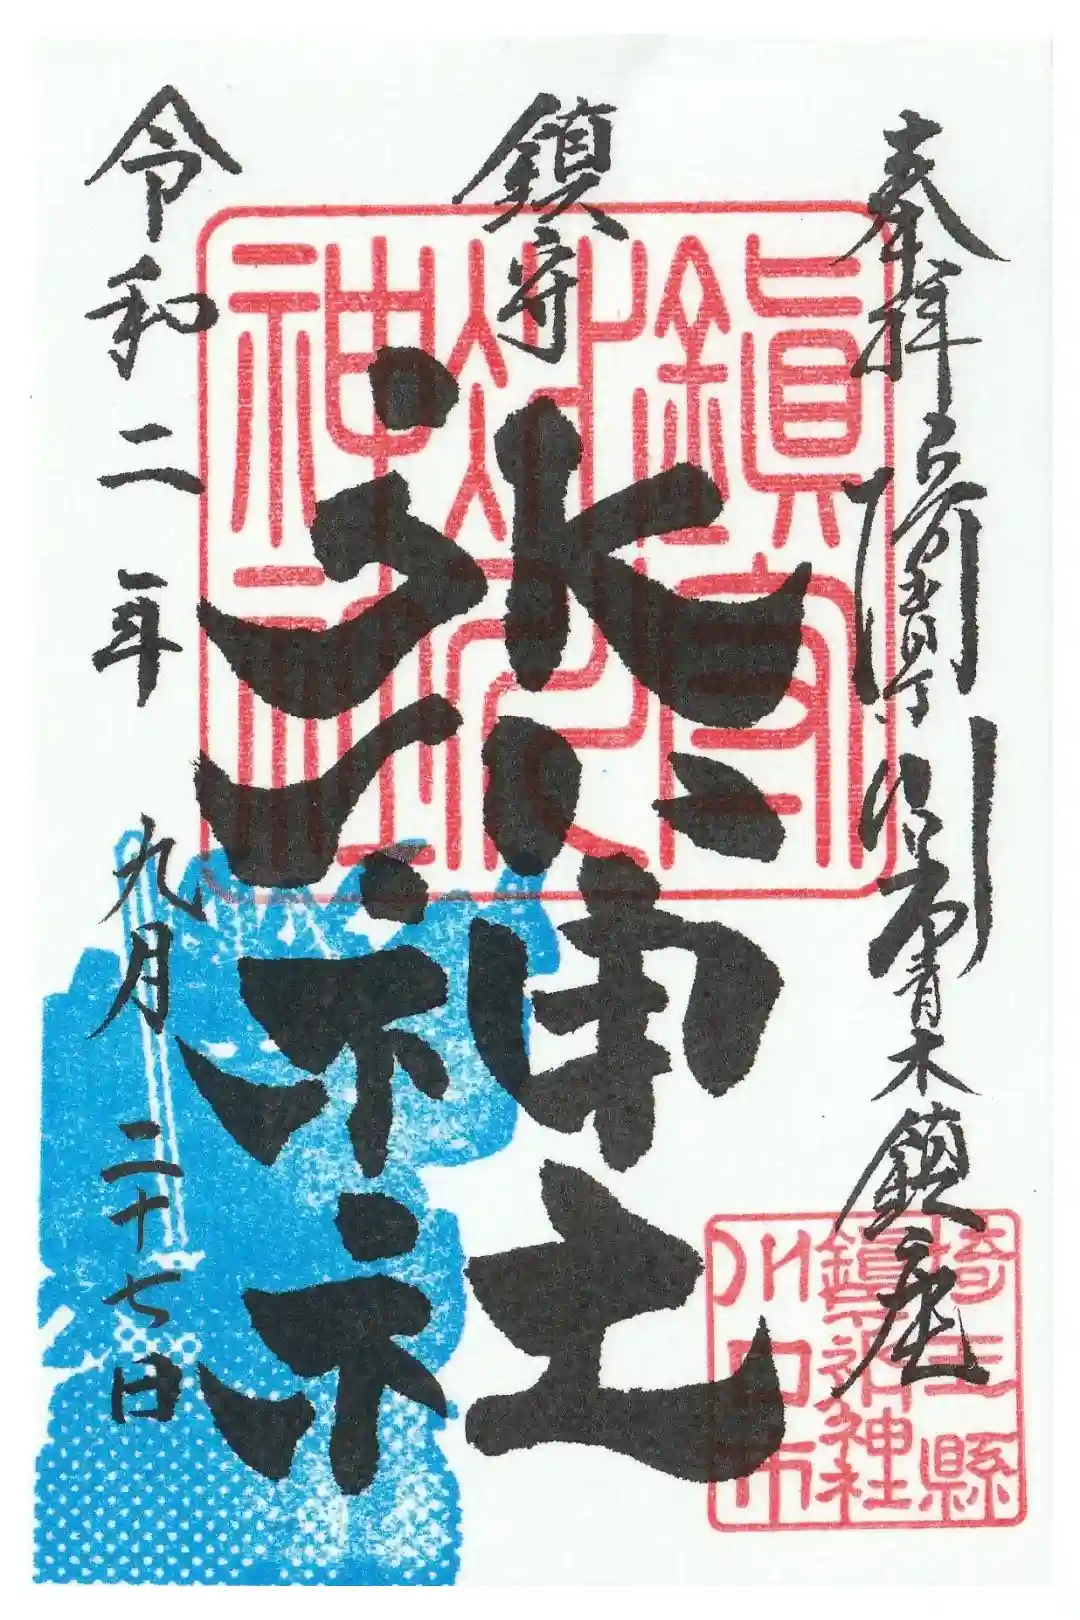 奉拝
青木鎮座
鎮守
氷川神社
令和二年 九月 二十七日
鎮守
神社
埼玉縣
鎮守氷川神社
川口市